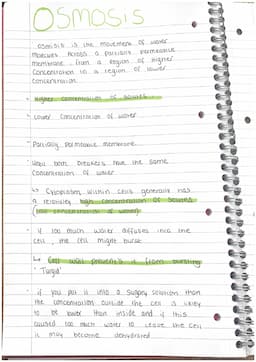 OSMOSIS
Osmosis is the movement of water
molecules across a partially permeable
membrane, from a region of higher
concentration to a region of lower
concentration.
Higher concentration of solutes
Lower concentration of water
Partially permeable membrane
Until both breakers have the same
concentration of water
↳ Cytoplasm within cells generally has
a relatively high concentration of solutes
(low concentration of water)
if too much water diffuses into the
cell, the cell might burst
↳ Cell wall prevents it from bursting
'Turgid'
if you put it into a sugary solution than
the concentration outside the cell is likely
to be lower than inside and if this
caused too much water to leave the cell
it may become dehydrated